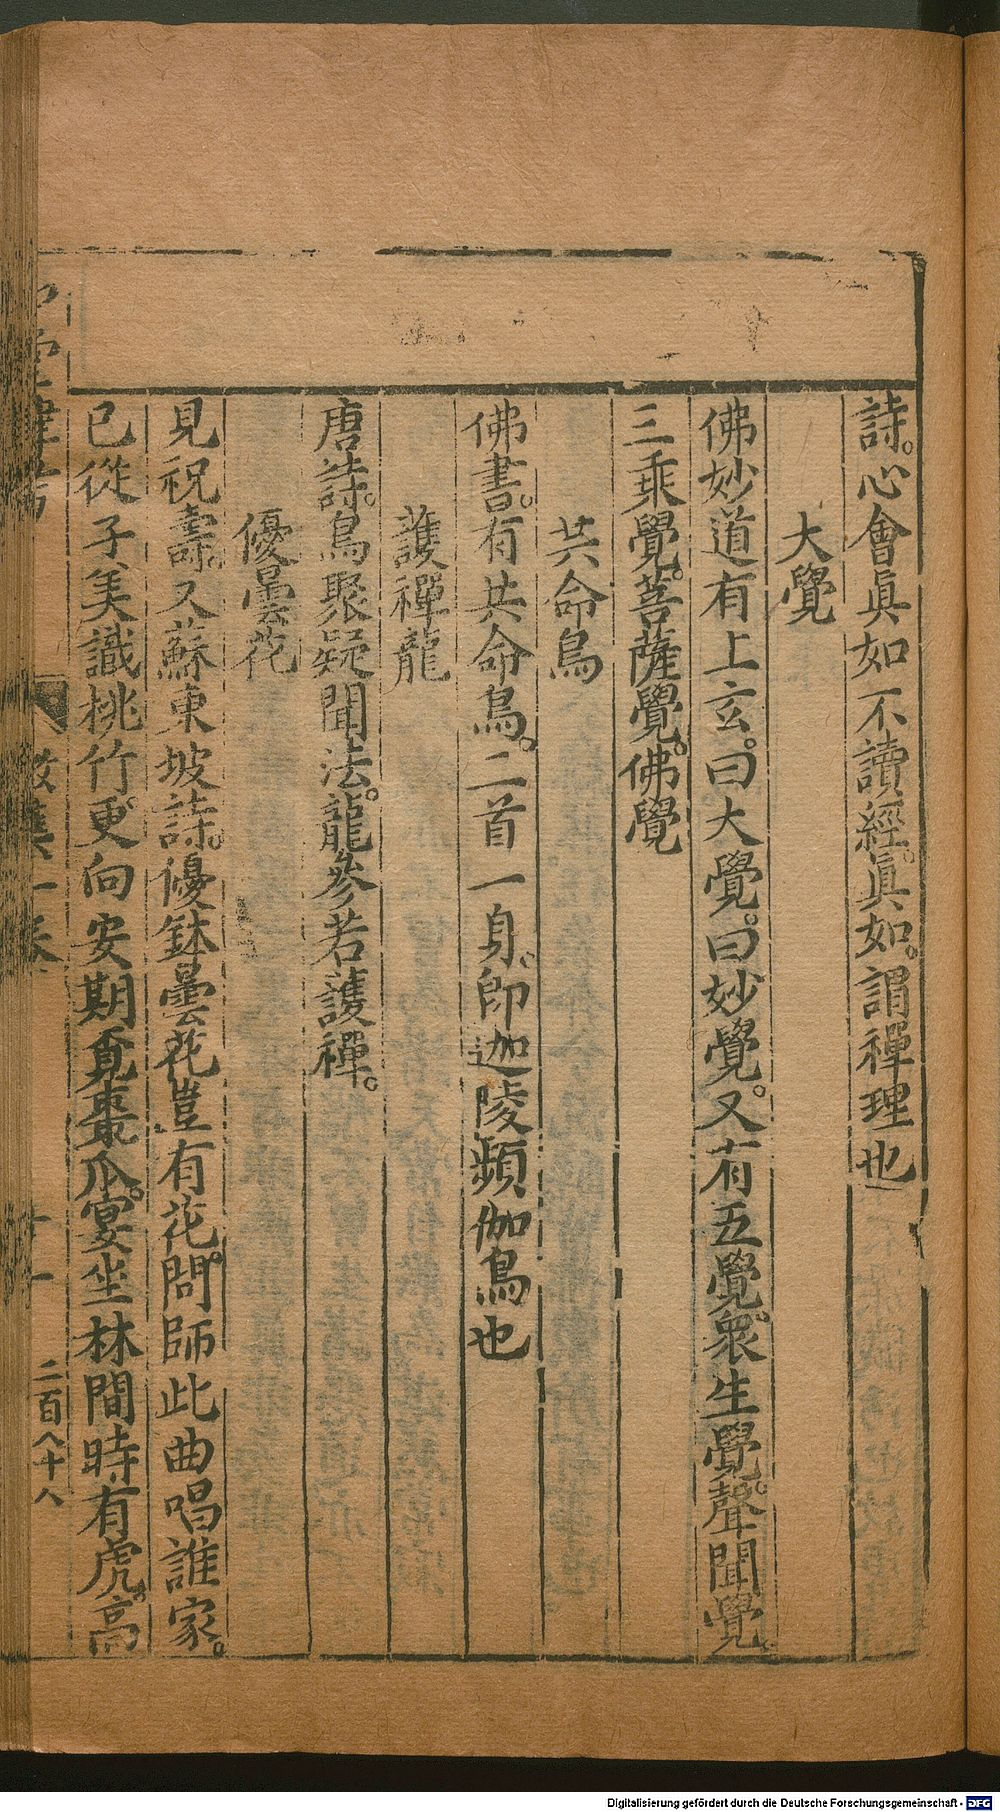 詩。心會眞如不讀經。眞如。謂禪理也
大覺
佛妙道有上玄。曰大覺。曰妙覺。又有五覺。衆生覺。聲聞覺。
三乘覺。菩薩覺。佛覺
共命鳥
佛書。有共命鳥。二首一身。即迦陵頻伽鳥也
護禪龍
唐詩。鳥聚疑聞法。龍參若護禪。
優曇花
見祝壽。又蘇東坡詩。優鉢曇花豈有花。問師此曲唱誰家。
已從子美識桃竹。更向安期覓棗瓜。宴坐林間時有虎。高
二百八十八
Digitalisierung gefördert durch die Deutsche Forschungsgemeinschaft - DFG